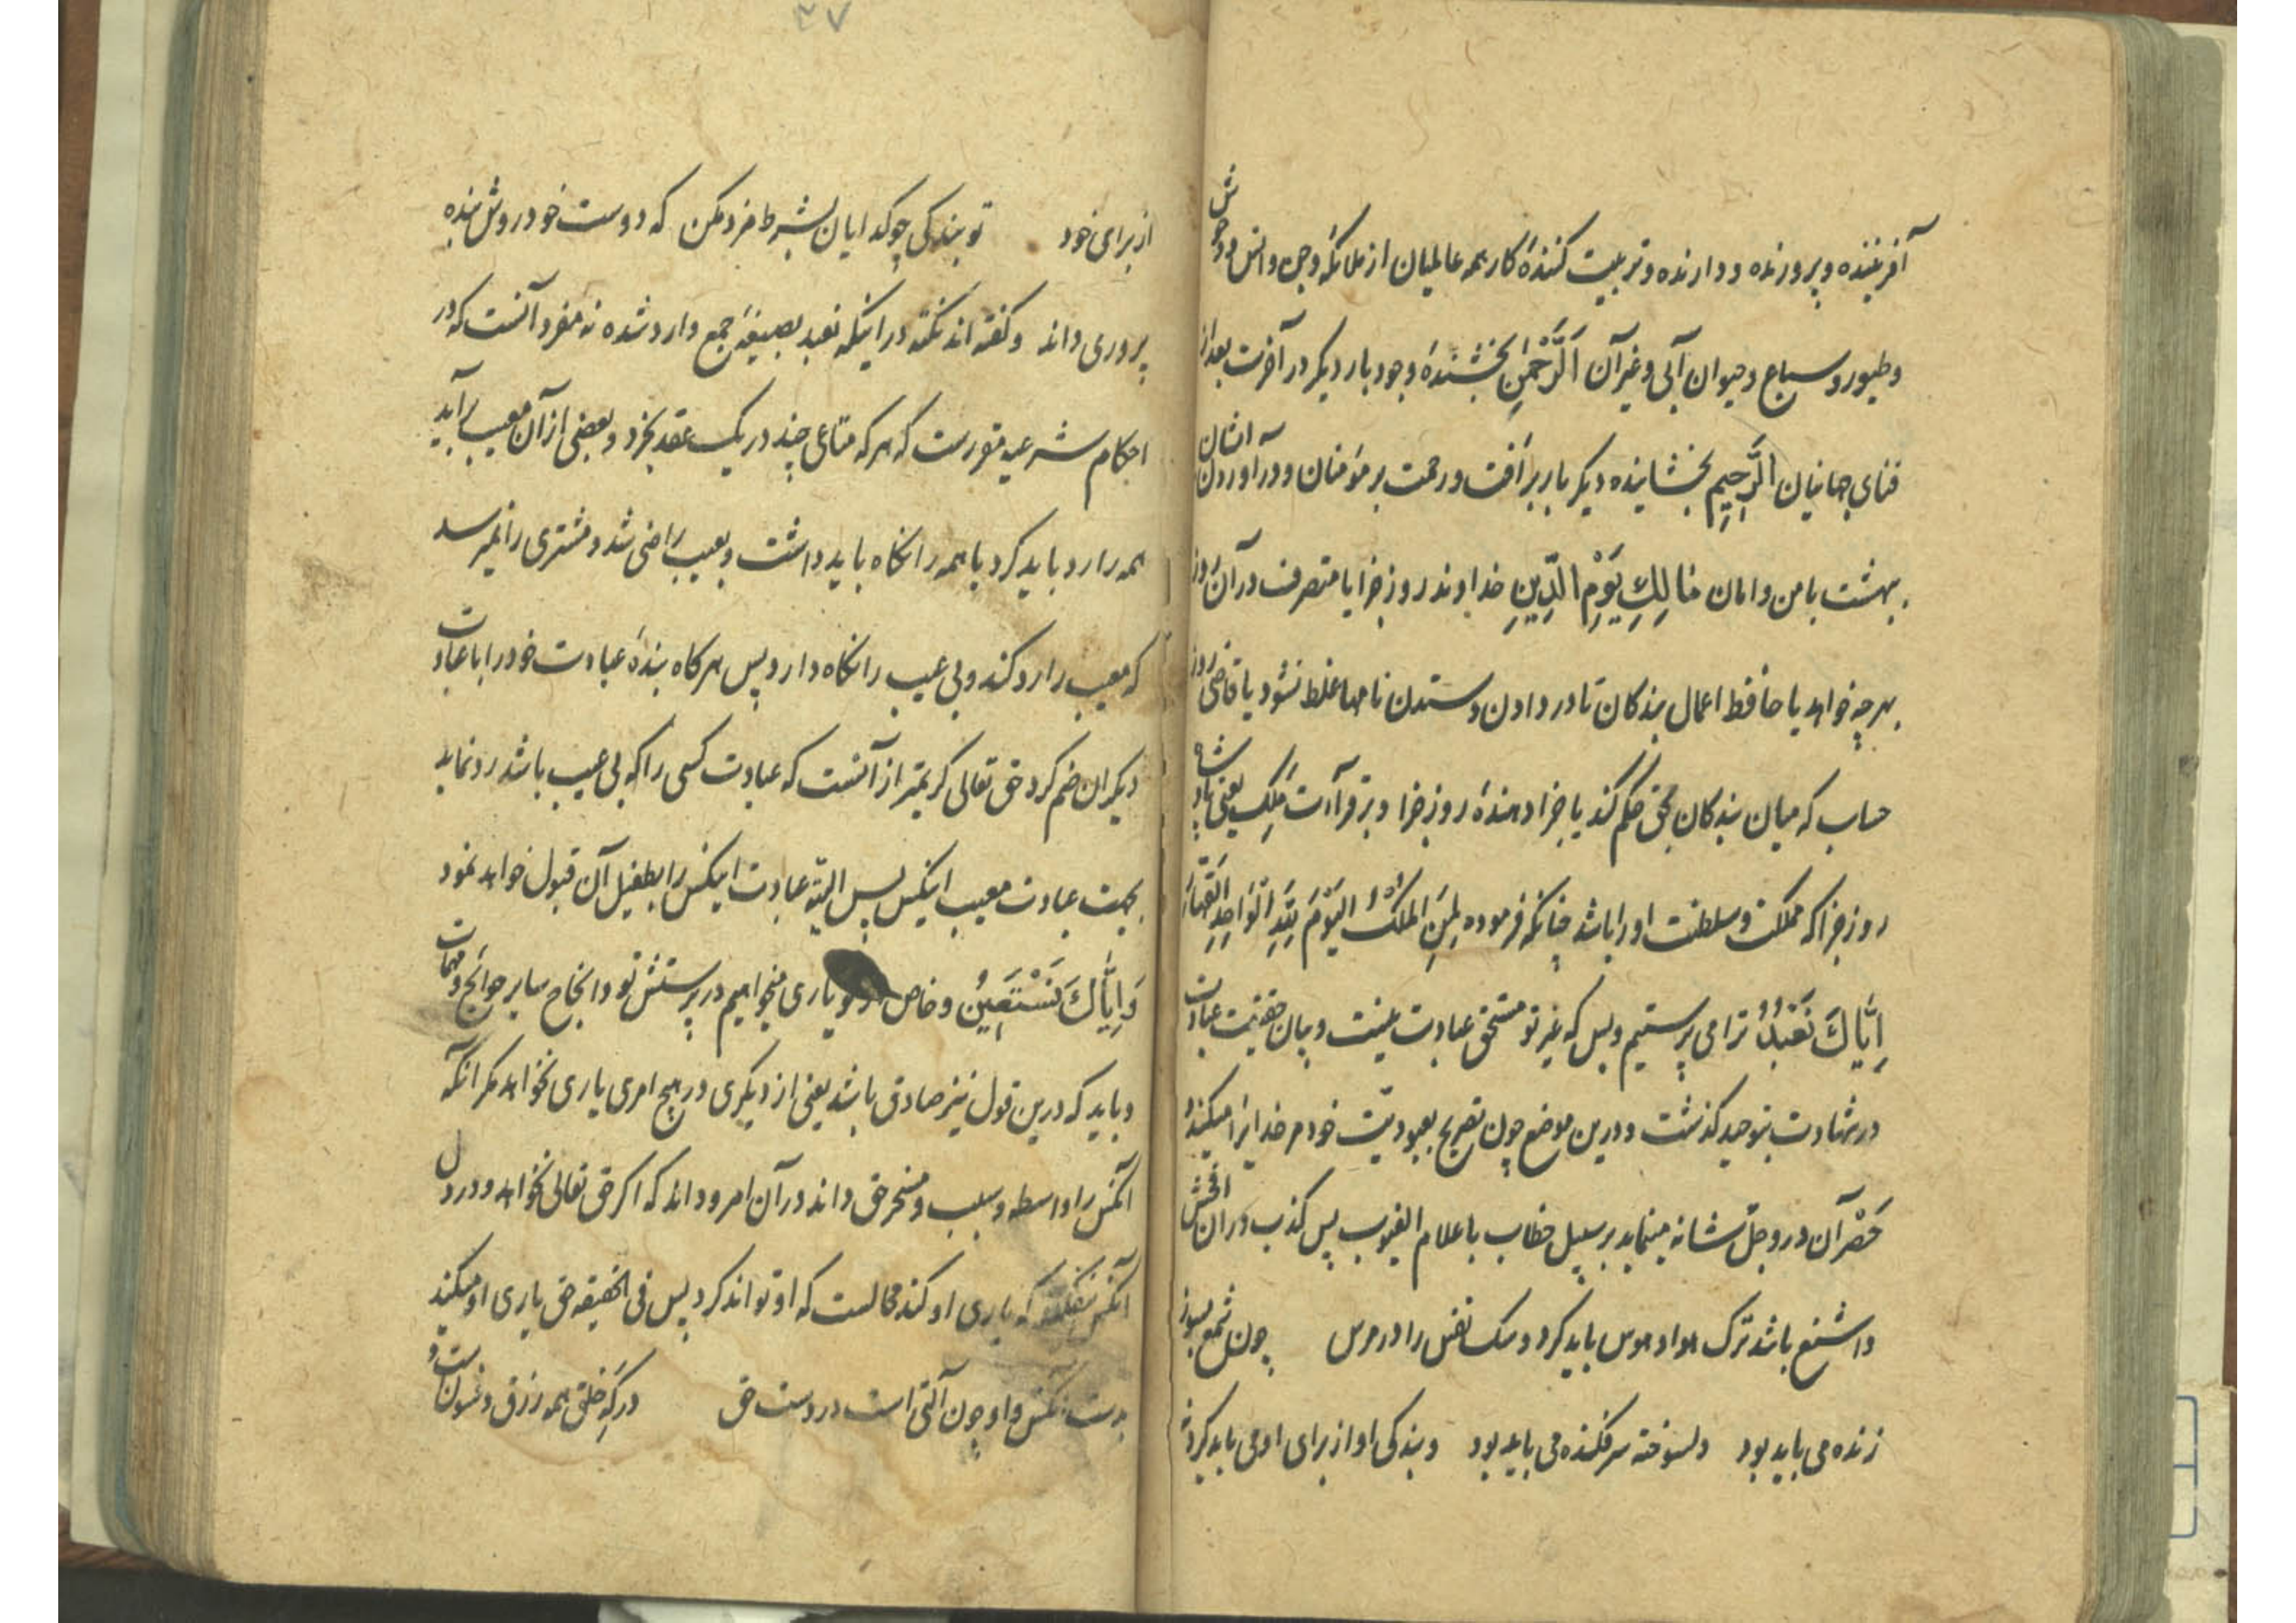 آفریننده و پرورنده و دارنده و تربیت کننده کار همه عالمیان از ملائکه و جن و انس و وحوش
و طیور و سباع و حیوان آبی و غیر آن اَلرَّحْمٰنِ بخشندهٔ وجود بار دیگر در آخرت بعد از
فنای جهانیان اَلرَّحِیمِ بخشاینده دیگر بار برأفت و رحمت بر مؤمنان و در آوردن ایشان
ببهشت با من و امان مَالِكِ یَوْمِ الدِّینِ خداوند روز جزا یا متصرف در آن روز
بهر چه خواهد یا حافظ اعمال بندکان تا در دادن و ستدن نامها غلط نشود یا قاضی روز
حساب که میان بندکان بحق حکم کند یا جزا دهندهٔ روز جزا و بر قراءت مَلِكِ یعنی پادشاه
روز جزا که مملکت و سلطنت او را باشد چنانکه فرموده لِمَنِ الْمُلْكُ الْیَوْمَ لِلّٰهِ الْوَاحِدِ الْقَهَّارِ
اِیَّاكَ نَعْبُدُ ترا می پرستیم و بس که غیر تو مستحق عبادت نیست و بیان حقیقت عبادت
در شهادت بتوحید کذشت و درین موضع چون تصریح بعبودیت خود مر خدایرا میکند و
حَصْر آن در و جل شانه مینماید بر سبیل خطاب با علام الغیوب پس کذب در آن افحش
و اشنع باشد ترک هوا و هوس باید کرد و سک نفس را در مرس چون شمع بسوز
زنده می باید بود دلسوخته سرفکنده می باید بود و بندکی او از برای او می باید کرد نه
۴۷
از برای خود تو بندکی چو کدایان بشرط مزد مکن که دوست خود روش بنده
پروری داند و کفته اند نکته در اینکه نعبد بصیغهٔ جمع وارد شده نه مفرد آنست که در
احکام شرعیه مقررست که هر که متاعی چند در یک عقد بخرد و بعضی از آن معیب برآید
همه را رد باید کرد یا همه را نکاه باید داشت و بعیب راضی شد و مشتری را نمیرسد
که معیب را رد کند و بی عیب را نکاه دارد پس هرکاه بندهٔ عبادت خود را با عبادت
دیکران ضم کرد حق تعالی کریمتر از آنست که عبادت کسی را که بی عیب باشد رد نماید
بجهت عبادت معیب اینکس پس البته عبادت اینکس را بطفیل آن قبول خواهد نمود
وَاِیَّاكَ نَسْتَعِینُ و خاص از تو یاری میخواهیم در پرستش تو و انجاح سایر حوائج و مهمات
و باید که درین قول نیز صادق باشد یعنی از دیکری در هیچ امری یاری نخواهد مکر آنکه
آنکس را واسطه و سبب و مسخر حق داند در آن امر و داند که اکر حق تعالی نخواهد و در دل
آنکس نیفکند که یاری او کند محالست که او تواند کرد پس فی الحقیقه حق یاری او میکند
بدست آنکس و او چون آلتی است در دست حق در کَهِ خلق همه زرق و فسونست و